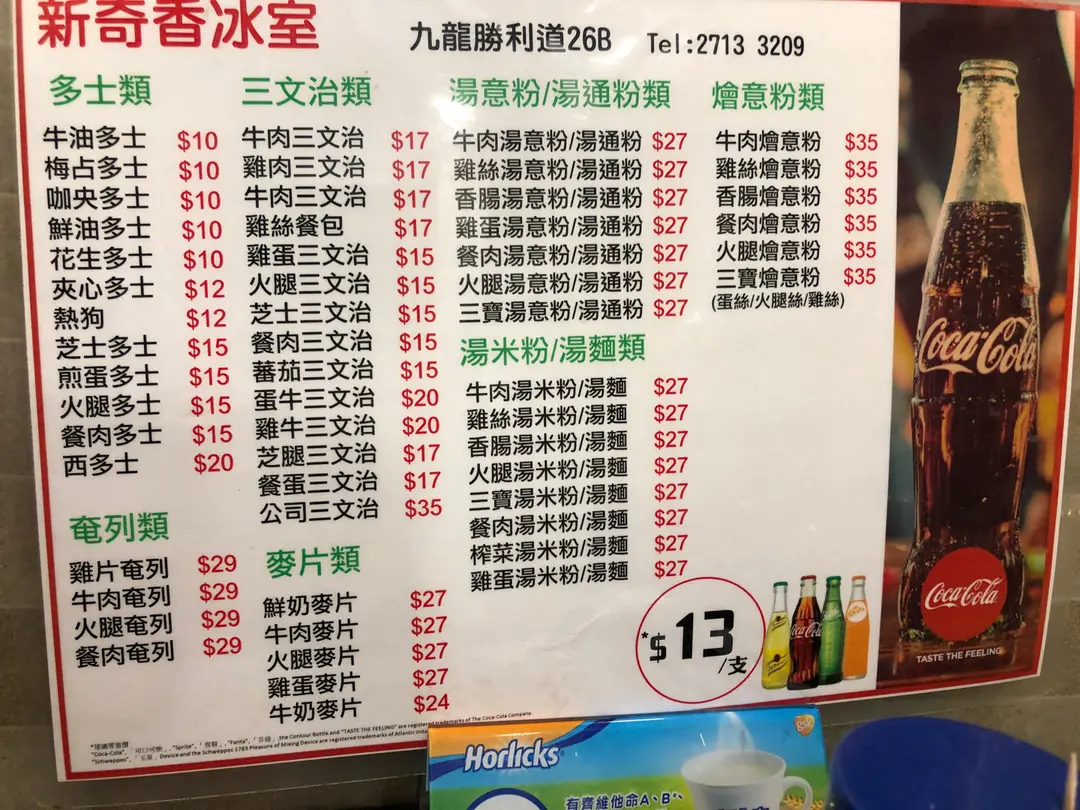 新奇香冰室
九龍勝利道26B Tel:2713 3209
多士類
牛油多士 $10
梅占多士 $10
咖央多士 $10
鮮油多士 $10
花生多士 $10
夾心多士 $12
熱狗 $12
芝士多士 $15
煎蛋多士 $15
火腿多士 $15
餐肉多士 $15
西多士 $20
奄列類
雞片奄列 $29
牛肉奄列 $29
火腿奄列 $29
餐肉奄列 $29
三文治類
牛肉三文治 $17
雞肉三文治 $17
牛肉三文治 $17
雞絲餐包 $17
雞蛋三文治 $15
火腿三文治 $15
芝士三文治 $15
餐肉三文治 $15
蕃茄三文治 $15
蛋牛三文治 $20
雞牛三文治 $20
芝腿三文治 $17
餐蛋三文治 $17
公司三文治 $35
麥片類
鮮奶麥片 $27
牛肉麥片 $27
火腿麥片 $27
雞蛋麥片 $27
牛奶麥片 $24
湯意粉/湯通粉類
牛肉湯意粉/湯通粉 $27
雞絲湯意粉/湯通粉 $27
香腸湯意粉/湯通粉 $27
雞蛋湯意粉/湯通粉 $27
餐肉湯意粉/湯通粉 $27
火腿湯意粉/湯通粉 $27
三寶湯意粉/湯通粉 $27
湯米粉/湯麵類
牛肉湯米粉/湯麵 $27
雞絲湯米粉/湯麵 $27
香腸湯米粉/湯麵 $27
火腿湯米粉/湯麵 $27
三寶湯米粉/湯麵 $27
餐肉湯米粉/湯麵 $27
榨菜湯米粉/湯麵 $27
雞蛋湯米粉/湯麵 $27
燴意粉類
牛肉燴意粉 $35
雞絲燴意粉 $35
香腸燴意粉 $35
餐肉燴意粉 $35
火腿燴意粉 $35
三寶燴意粉 $35
(蛋絲/火腿絲/雞絲)
*$13/支
Coca-Cola
Coca-Cola
Coca-Cola
TASTE THE FEELING
"Coca-Cola", 「可口可樂」, "Sprite", 「雪碧」, "Fanta", 「芬達」, the Contour Bottle and "TASTE THE FEELING" are registered trademarks of The Coca-Cola Company
"Schweppes", 「玉泉」 Device and the Schweppes 1783 Pleasure of Mixing Device are registered trademarks of Atlantic
Horlicks
gsk
有齊維他命A、B